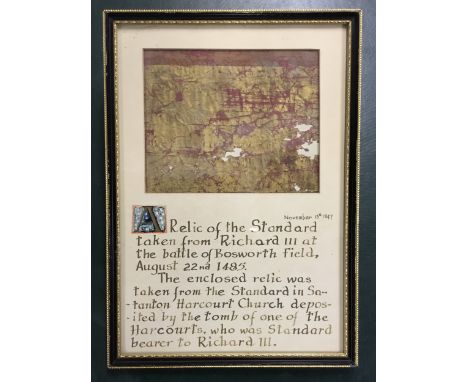 November 15th 1847
A Relic of the Standard
taken from Richard III at
the battle of Bosworth Field,
August 22nd 1485.
The enclosed relic was
taken from the Standard in Sa-
-tanton Harcourt Church depos-
-ited by the tomb of one of the
Harcourts, who was Standard
bearer to Richard III.